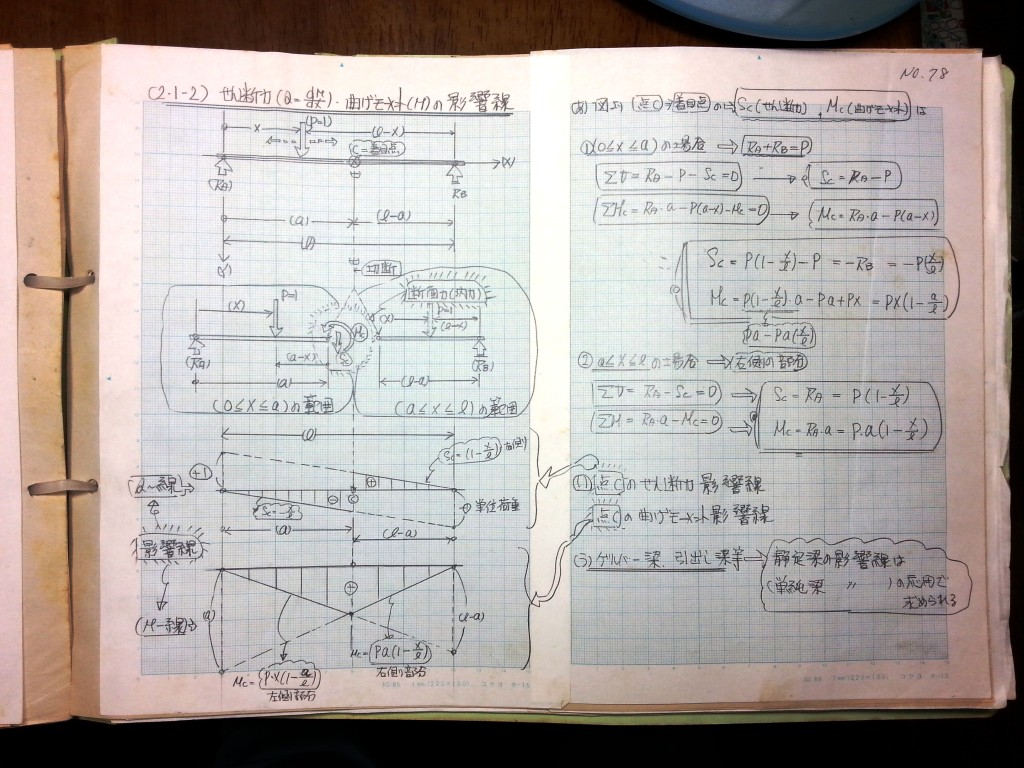 (2.1-2) せん断力(Q=dM/dx)・曲げモーメント(M)の影響線
x
P=1
(l-x)
C=着目点
(X)
(RA)
RB
(a)
(l-a)
(l)
切断
断面力(内力)
(x)
P=1
(a-x)
(a)
(RA)
Mc
Sc
(x)
P=1
(l-x)
(l-a)
(RB)
(0≤x≤a)の範囲
(a≤x≤l)の範囲
(l)
Sc=(1-x/l)右側り
+1
Q-線
⊕
⊖
C
単位荷重
Sc=-x/l
(a)
(l-a)
影響線
(M-線)
(a)
⊕
(l-a)
Mc=P・x(1-a/l)
左側り部分
Mc=Pa(1-x/l)
右側り部分
NO.78
図より(点C)着目点のSc(せん断力), Mc(曲げモーメント)は
①(0≤x≤a)の場合 → RA+RB=P
ΣV=RA-P-Sc=0 → Sc=RA-P
ΣMc=RA・a-P(a-x)-Mc=0 → Mc=RA・a-P(a-x)
Sc=P(1-x/l)-P=-RB=-P(x/l)
Mc=P(1-x/l)・a-Pa+Px=Px(1-a/l)
Pa-Pa(x/l)
② a≤x≤lの場合 → 左側りの部分
ΣV=RA-Sc=0 → Sc=RA=P(1-x/l)
ΣM=RA・a-Mc=0 → Mc=RA・a=P・a(1-x/l)
(い)点Cのせん断力影響線
点Cの曲げモーメント影響線
(う)ゲルバー梁、引出し梁等 → 静定梁の影響線は
(単純梁 〃 )の応用で
求められる